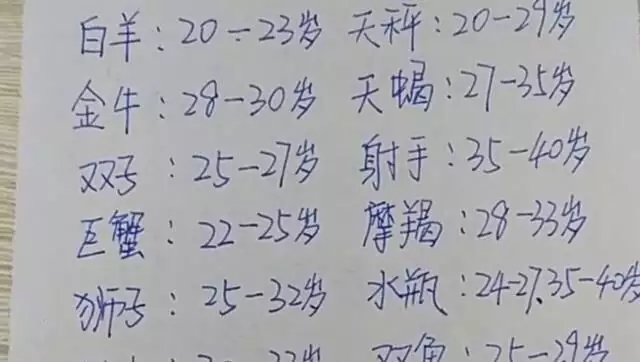 白羊：20-23岁 天秤：20-29岁
金牛：28-30岁 天蝎：27-35岁
双子：25-27岁 射手：35-40岁
巨蟹：22-25岁 摩羯：28-33岁
狮子：25-32岁 水瓶：24-27.35-40岁
双鱼：25-29岁